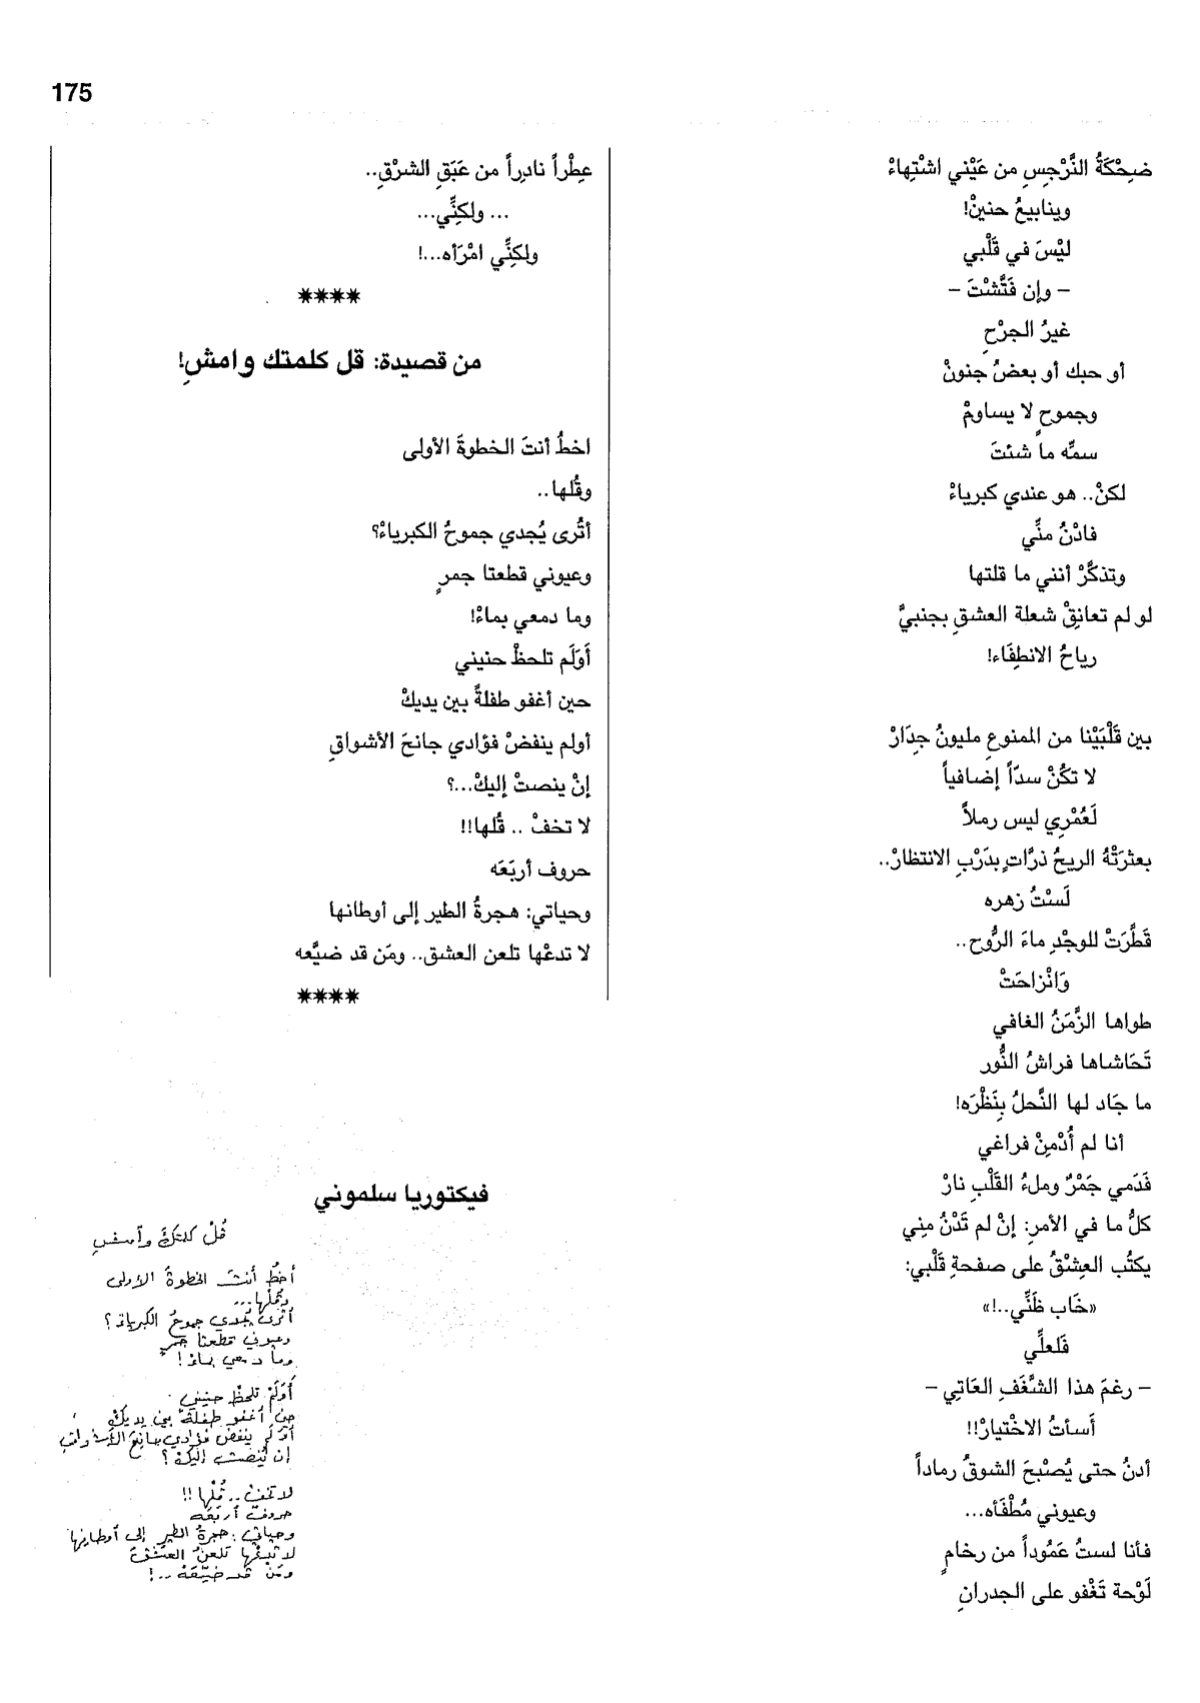 175
ضِحْكَةُ النَّرْجِسِ من عَيْني اشْتِهاءْ
وينابيعُ حنينْ!
ليْسَ في قَلْبي
– وإن فَتَّشْتَ –
غيرُ الجرْحِ
أو حبك أو بعضُ جنونْ
وجموحٍ لا يساومْ
سمِّه ما شئتَ
لكنْ.. هو عندي كبرياءْ
فادْنُ منِّي
وتذكَّرْ أنني ما قلتها
لو لم تعانِقْ شعلة العشقِ بجنبيَّ
رياحُ الانطِفَاء!
بين قَلْبَيْنا من المنوعِ مليونُ جِدَارْ
لا تكُنْ سدّاً إضافياً
لَعُمْرِي ليس رملاً
بعثرَتْهُ الريحُ ذرَّاتٍ بدَرْبِ الانتظارْ..
لَسْتُ زهره
قَطَّرَتْ للوجْدِ ماءَ الرُّوح..
وَانْزاحَتْ
طواها الزَّمَنُ الغافي
تَحَاشاها فراشُ النُّور
ما جَاد لها النَّحلُ بِنَظْرَه!
أنا لم أُدْمِنْ فراغي
فَدَمي جَمْرٌ وملءُ القَلْبِ نارْ
كلُّ ما في الأمرِ: إنْ لم تَدْنُ مِني
يكتُب العِشْقُ على صفحةِ قَلْبي:
«خَاب ظَنِّي..!»
فَلعلِّي
– رغمَ هذا الشَّغَفِ العَاتِي –
أَسأتُ الاخْتيارْ!!
أدنُ حتى يُصْبحَ الشوقُ رماداً
وعيوني مُطْفَأه...
فأنا لستُ عَمُوداً من رخامٍ
لَوْحة تَغْفو على الجدرانِ
عِطْراً نادِراً من عَبَقِ الشرْقِ..
... ولكنِّي...
ولكنِّي امْرَأه...!
****
من قصيدة: قل كلمتك وامشِ!
اخطُ أنتَ الخطوةَ الأولى
وقُلها..
أتُرى يُجدي جموحُ الكبرياءْ؟
وعيوني قطعتا جمرٍ
وما دمعي بماءْ!
أَوَلَم تلحظْ حنيني
حين أغفو طفلةً بين يديكْ
أولم ينفضْ فؤادي جانحَ الأشواقِ
إنْ ينصتْ إليكْ...؟
لا تخفْ .. قُلها!!
حروف أربَعَه
وحياتي: هجرةُ الطير إلى أوطانها
لا تدعْها تلعن العشق.. ومَن قد ضيَّعه
****
فيكتوريا سلموني
قُلْ كلمتكَ وآمشِ
أخطُ أنتَ الخطوةَ الأولى
وقُلْها...
أتُرى يُجدي جموحُ الكبرياءْ؟
وعيوني قطعتا جمرٍ
وما دمعي بماءْ!
أَوَلَمْ تلحظْ حنيني
حين أغفو طفلةً بين يديكْ
أوَلَم ينفض فؤادي جانحَ الأشواقِ
إن يُنصتْ إليكْ؟
لا تخفْ.. قُلْها!!
حروفٌ أربَعَه
وحياتي: هجرةُ الطيرِ إلى أوطانِها
لا تَدَعْها تلعنُ العشقَ
ومَنْ قد ضيَّعَهْ..!